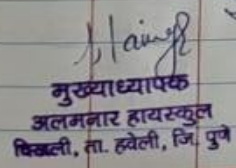 मुख्याध्यापक
अलमनार हायस्कूल
चिखली, ता. हवेली, जि. पुणे